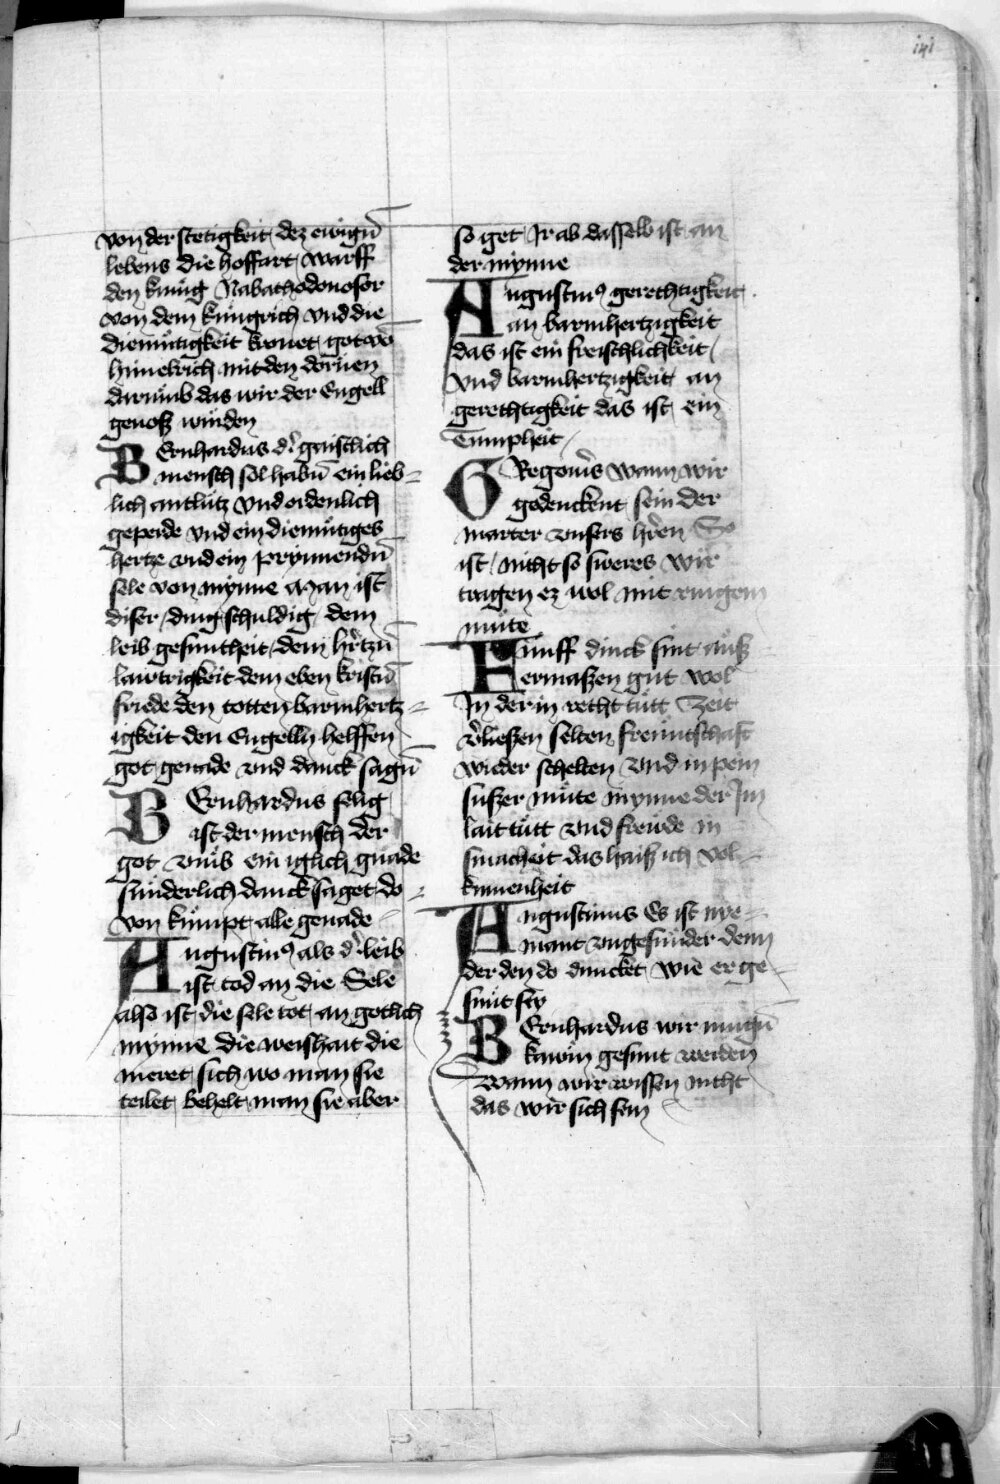 141
von der stetigkeit dez ewigū
lebens die hoffart warff
den kunig Nabathodonosor
von dem kungrich vnd die
diemutigkeit kronet got vō
himelrich mit den dornen
darumb das wir der Engell
genosz wurden
BErnhardus d̓ gaistlich
mensch sol habū ein lieb=
lich antlutz vnd ordenlich
geperde vnd ein diemutiges
hertze vnd ein prynnendū
sele von mynne Man ist
diser ding schuldig dem
leib gesuntheit dem hertzū
lautrigkeit dem eben kristū
friede den totten barmhertz=
igkeit den Engelln helffen
got genade vnd danck sagū
BErnhardus selig
ist der mensch der
got vmb ein iglich gnade
sunderlich danck saget do=
von kumpt alle genade
Augustin⁹ als d̓ leib
ist tod an die Sele
also ist die sele tot an gotlich
mynne die weishait die
meret sich wo man sie
teilet behelt man sie aber
so get Ir ab dasselb ist an
der mynne
Augustin⁹ gerechtigkeit
an barmhertzigkeit
das ist ein freischlichkeit
vnd barmhertzigkeit an
gerechtigkeit das ist ein
Tumpheit
GRegorius wann wir
gedenckent sein der
marter vnsers hren So
ist nicht so sweres wir
tragen ez wol mit ringem
mute
Funff dinck sint ausz
ermaszen gut wol
In der in recht tutt Zeit
v̓lieszen selten freuntschaft
wieder schelten vnd in pein
suszer mute mynne der Im
lait tutt vnd freude in
smacheit das haisz ich vol=
kumenheit
Augustinus Es ist nye=
mant vngesunder denn
der den do duncket wie er ge=
sunt sey
BErnhardus wir mugū
kawm gesunt werden
Wann wir wissen nicht
das wir sich sein